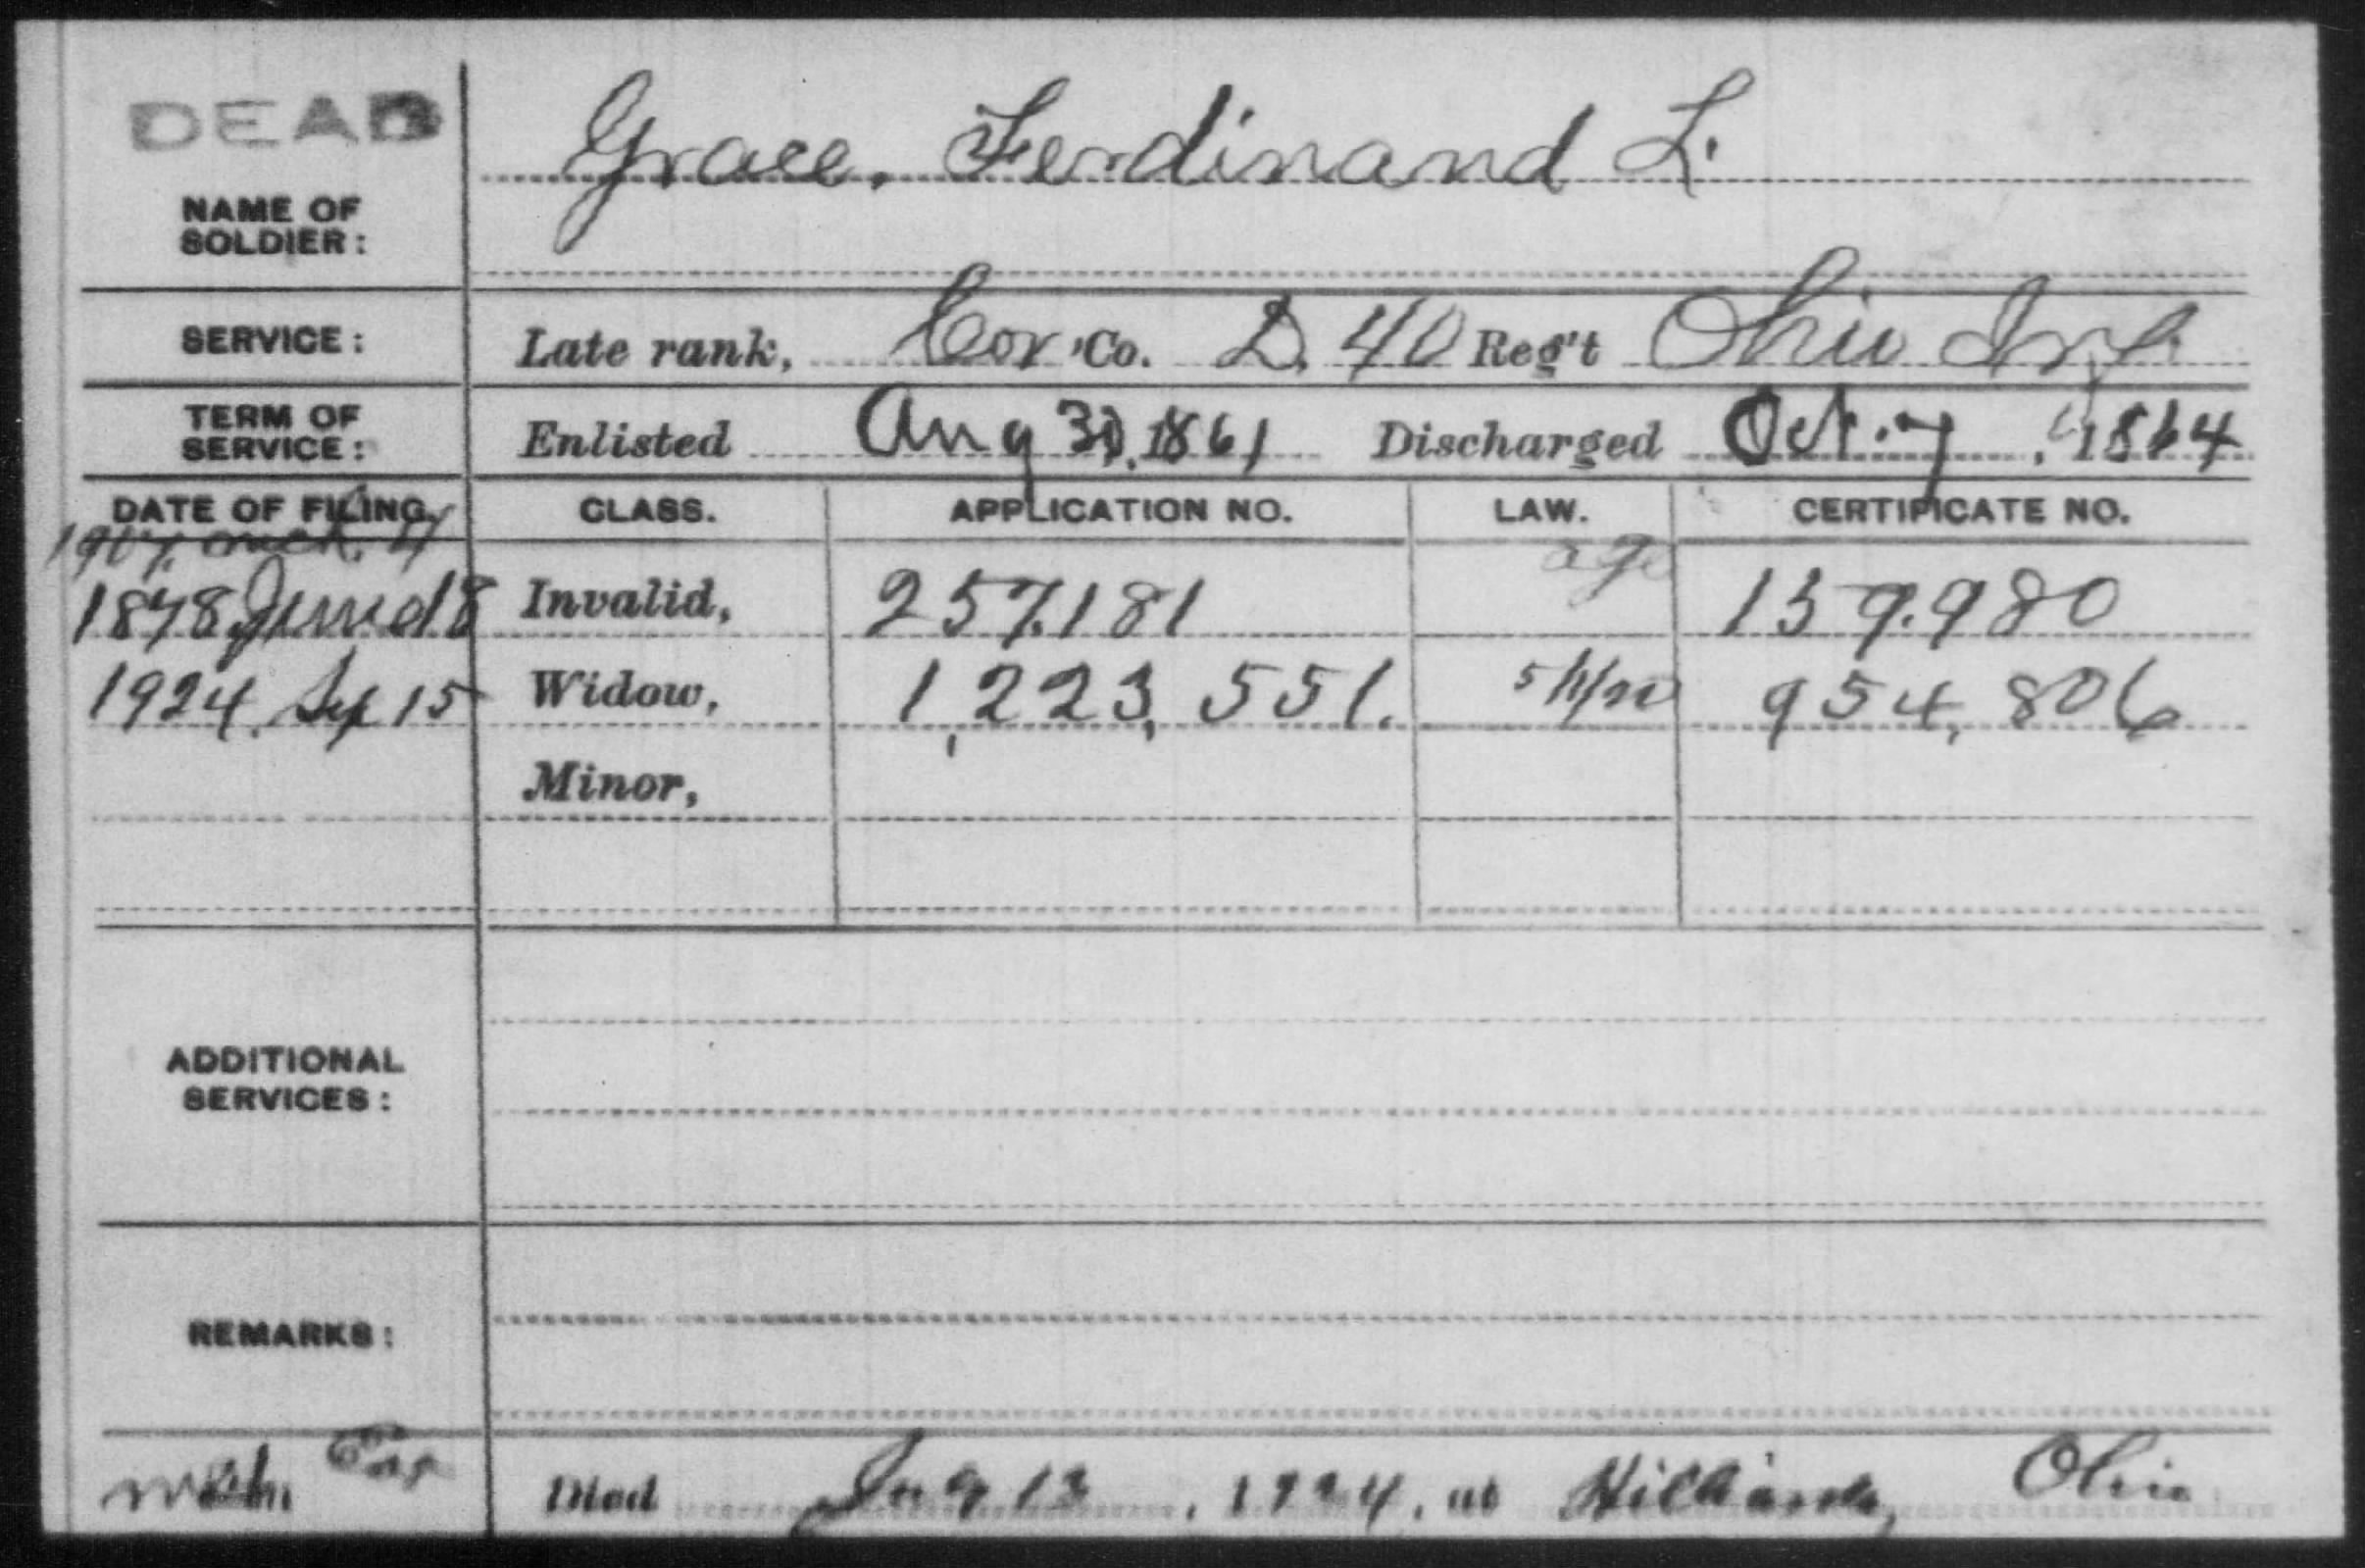 DEAD
NAME OF SOLDIER: Grace, Ferdinand L.
SERVICE: Late rank, Cor Co. D. 40 Reg't Ohio Inf.
TERM OF SERVICE: Enlisted Aug 30, 1861 Discharged Oct. 7, 1864
DATE OF FILING. CLASS. APPLICATION NO. LAW. CERTIFICATE NO.
1907, 4 age
1878 June 18 Invalid, 257.181 159.980
1924, Sep 15 Widow, 1,223,551. 954,806
Minor,
ADDITIONAL SERVICES:
REMARKS:
Died 13, 1924, at Hilliards, Ohio